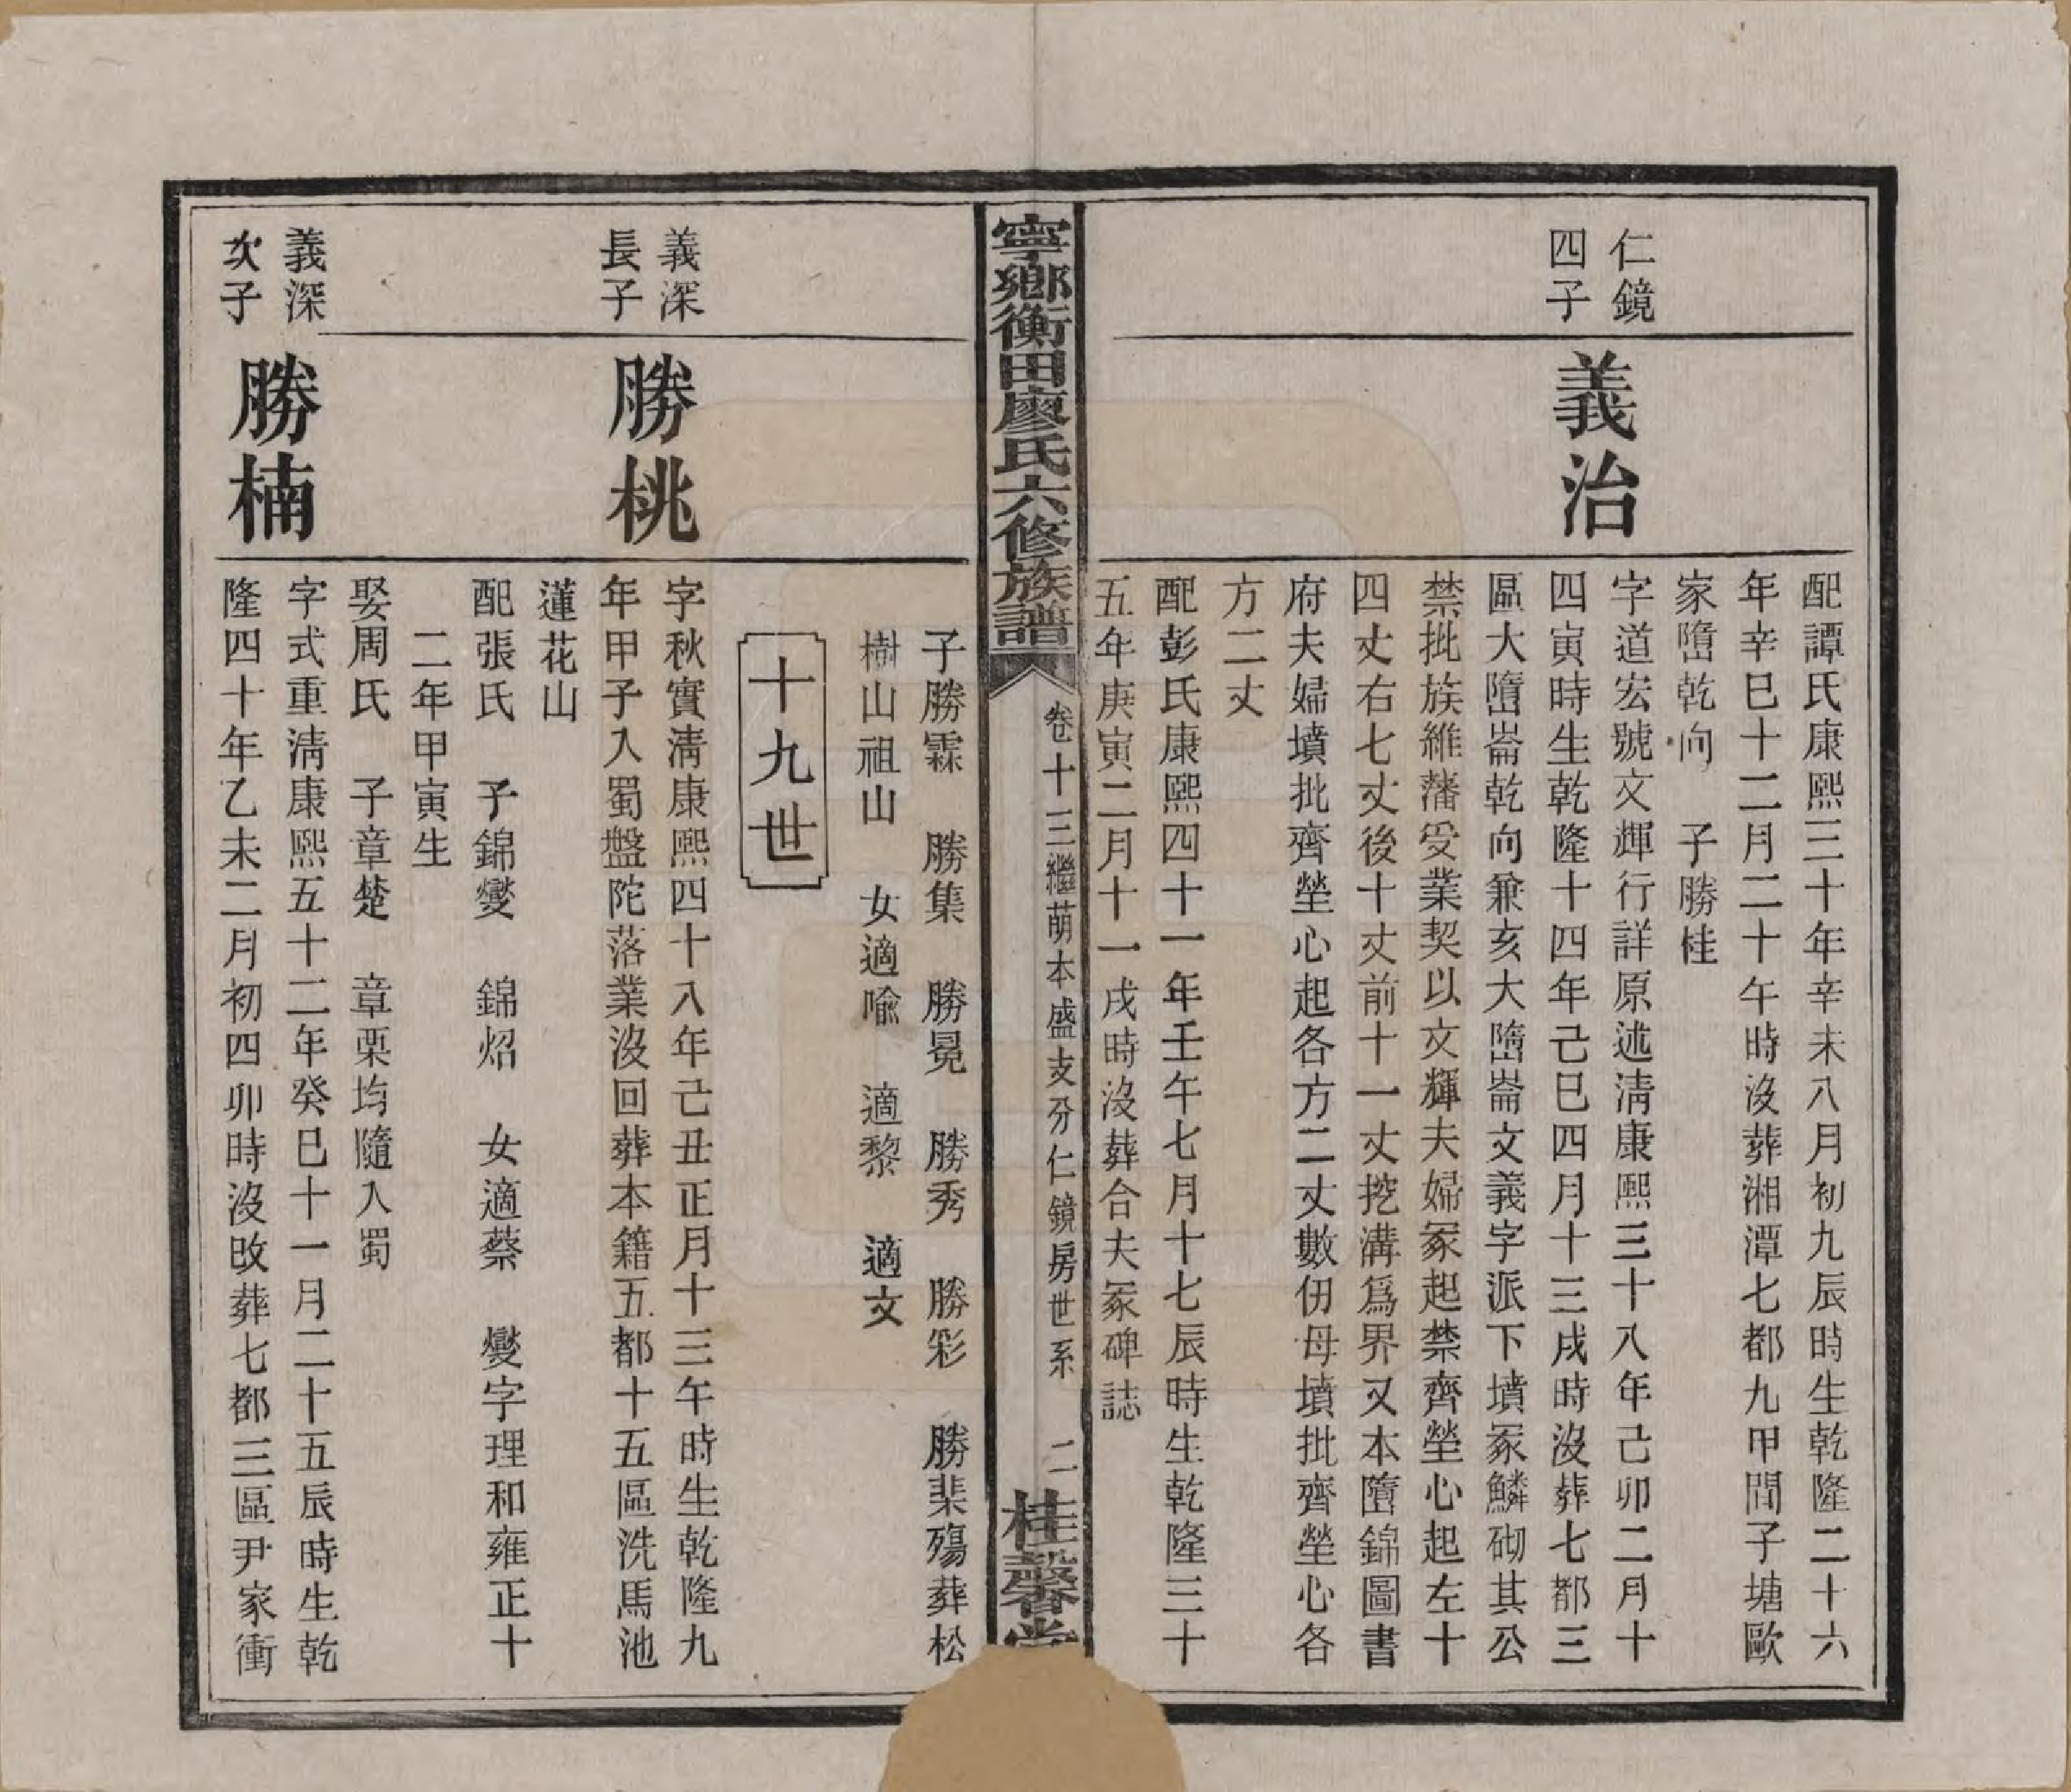 配譚氏康熙三十年辛未八月初九辰時生乾隆二十六
年辛巳十二月二十午時沒葬湘潭七都九甲間子塘歐
家墮乾向　子勝桂
仁鏡
四子
義治
字道宏號文輝行詳原述淸康熙三十八年己卯二月十
四寅時生乾隆十四年己巳四月十三戌時沒葬七都三
區大墮崙乾向兼亥大墮崙文義字派下墳冢鱗砌其公
禁批族維藩受業契以文輝夫婦冢起禁齊塋心起左十
四丈右七丈後十丈前十一丈挖溝爲界又本墮錦圖書
府夫婦墳批齊塋心起各方二丈數仞母墳批齊塋心各
方二丈
配彭氏康熙四十一年壬午七月十七辰時生乾隆三十
五年庚寅二月十一戌時沒葬合夫冢碑誌
寧鄉衡田廖氏六修族譜
卷十三繼萌本盛支分仁鏡房世系　二
桂馨堂
子勝霖　勝集　勝冕　勝秀　勝彩　勝棐殤葬松
樹山祖山　女適喩　適黎　適文
十九世
義深
長子
勝桃
字秋實淸康熙四十八年己丑正月十三午時生乾隆九
年甲子入蜀盤陀落業沒回葬本籍五都十五區洗馬池
蓮花山
配張氏　子錦燮　錦炤　女適蔡　燮字理和雍正十
二年甲寅生
娶周氏　子章楚　章栗均隨入蜀
義深
次子
勝楠
字式重淸康熙五十二年癸巳十一月二十五辰時生乾
隆四十年乙未二月初四卯時沒改葬七都三區尹家衝